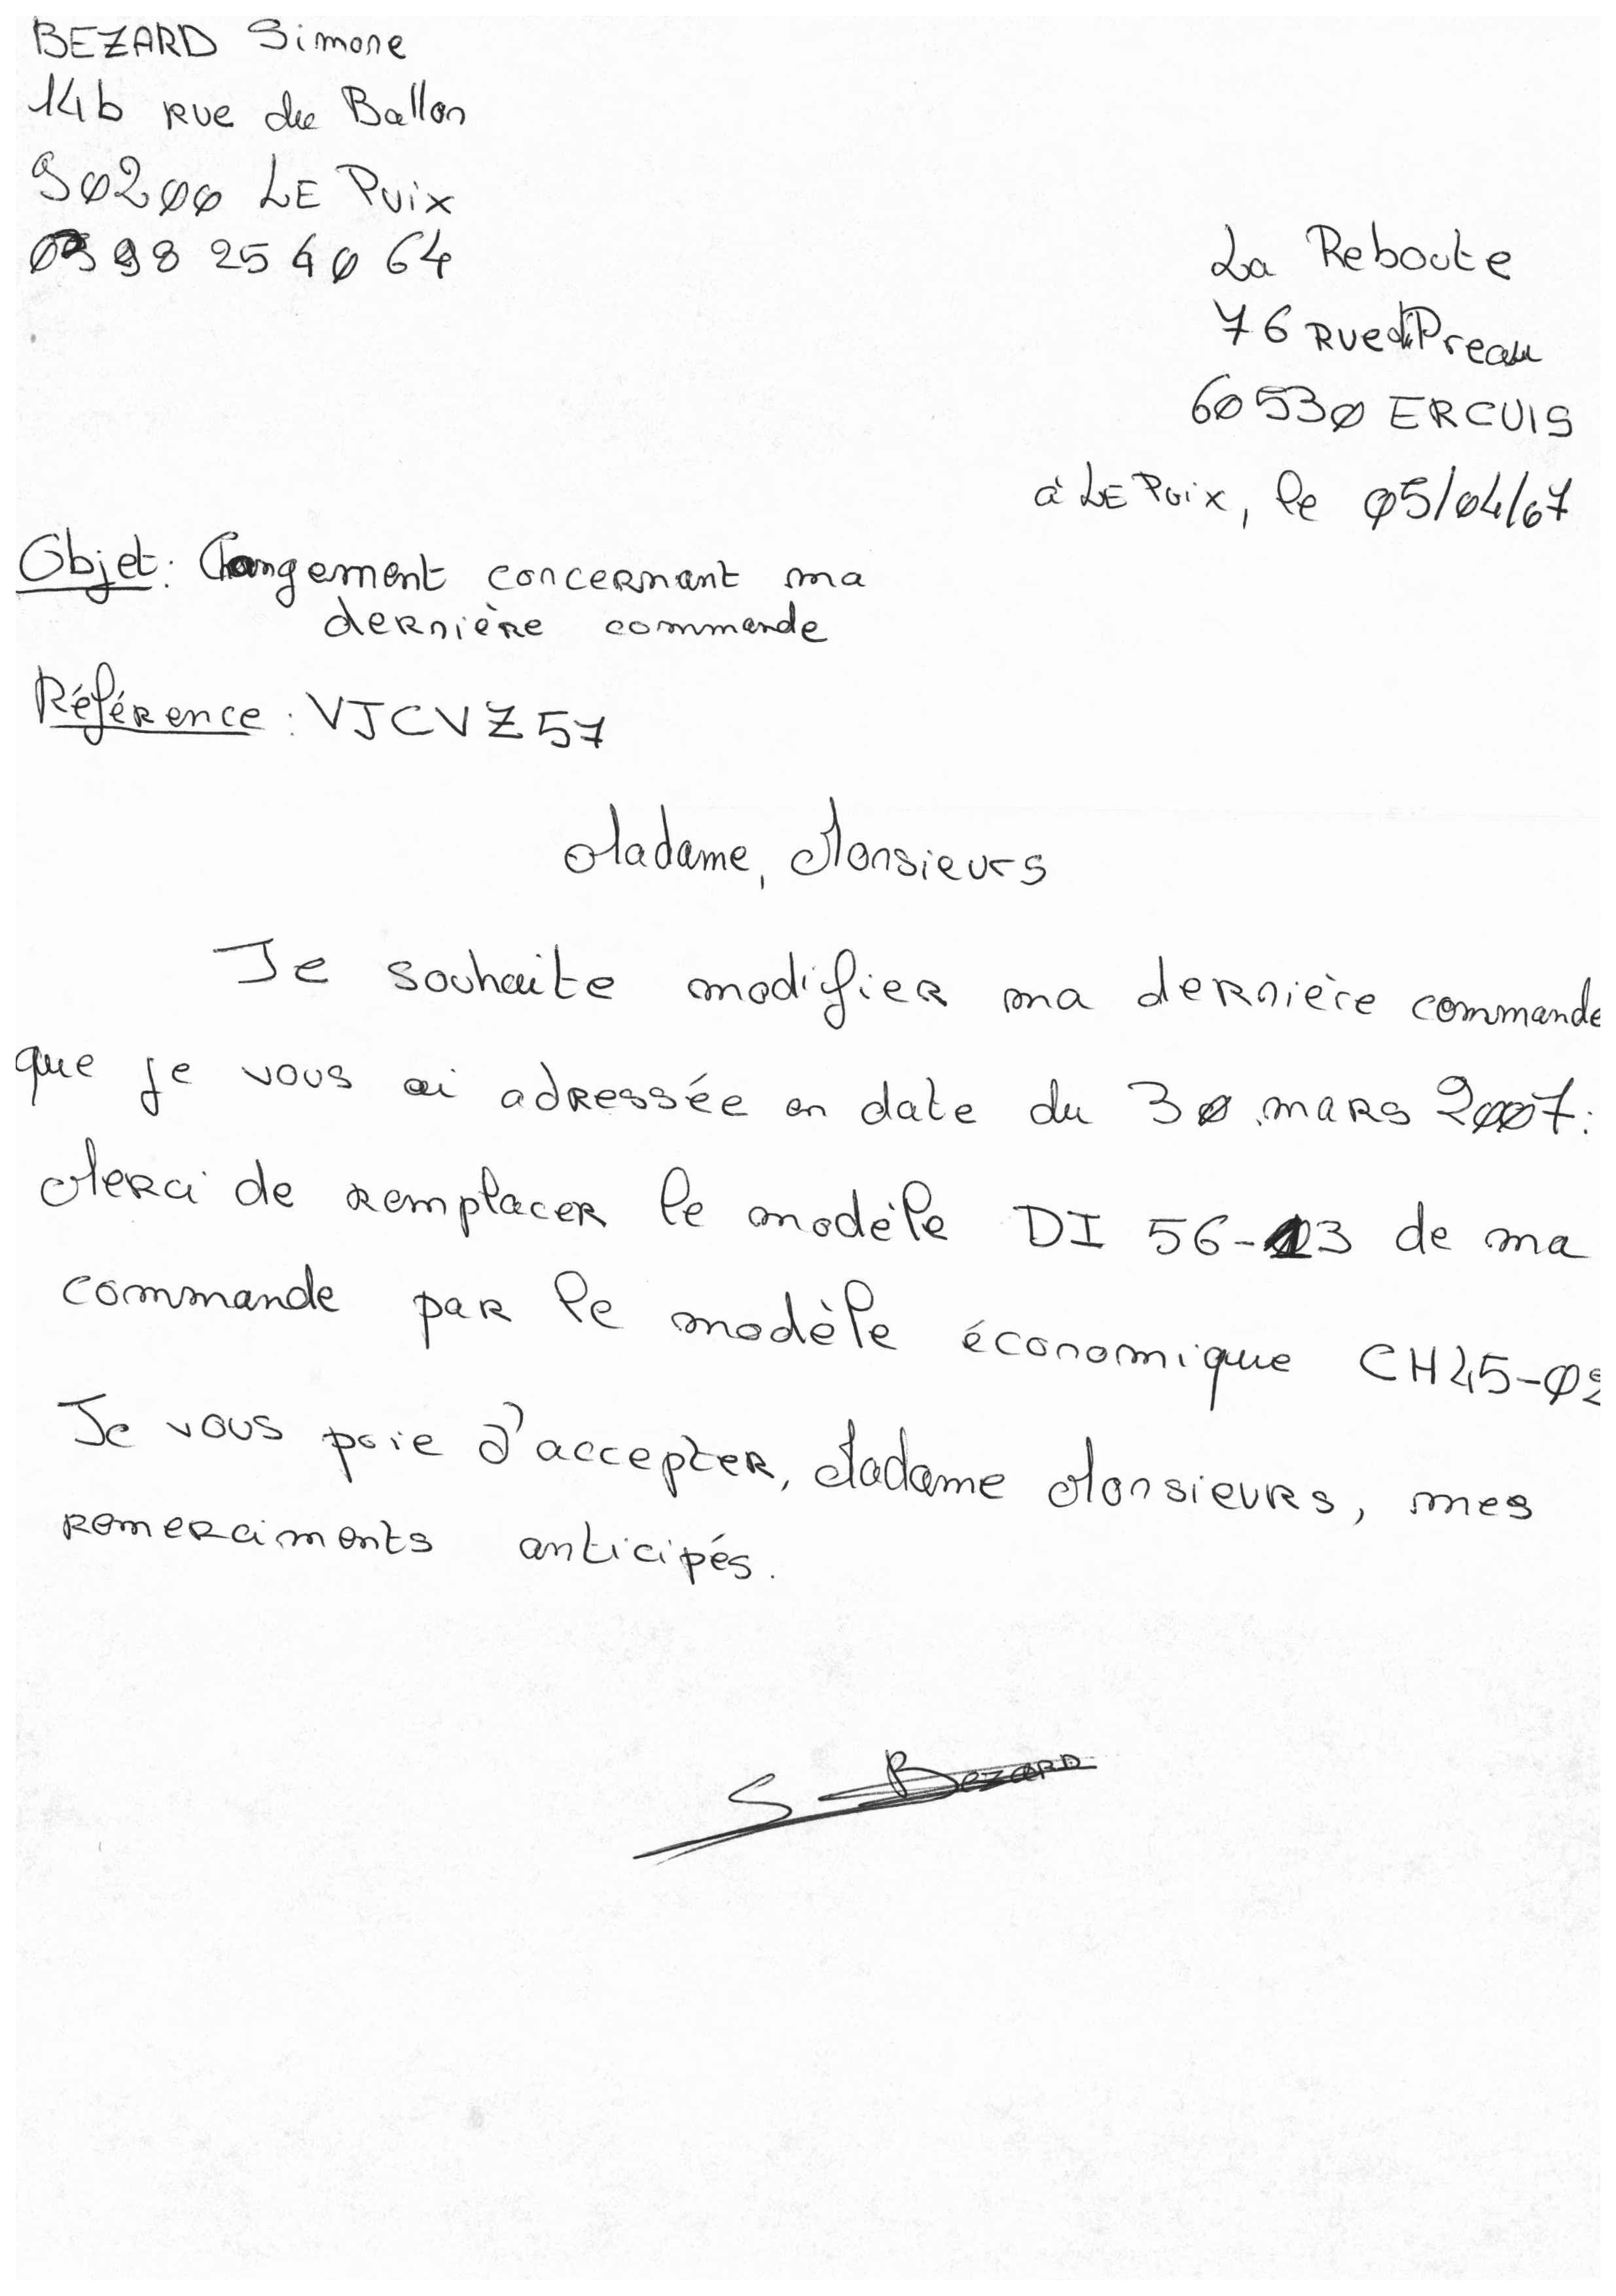 BEZARD Simone
14b rue du Ballon
90200 LE Puix
03 98 25 40 64
La Reboute
76 rue du Preau
60530 ERCUIS
à LE Puix, le 05/04/07
Objet : Changement concernant ma
dernière commande
Référence : VJCVZ57
Madame, Monsieurs
Je souhaite modifier ma dernière commande
que je vous ai adressée en date du 30 mars 2007.
Merci de remplacer le modèle DI 56-13 de ma
commande par le modèle économique CH45-02
Je vous prie d'accepter, Madame Monsieurs, mes
remerciments anticipés.
S Bezard